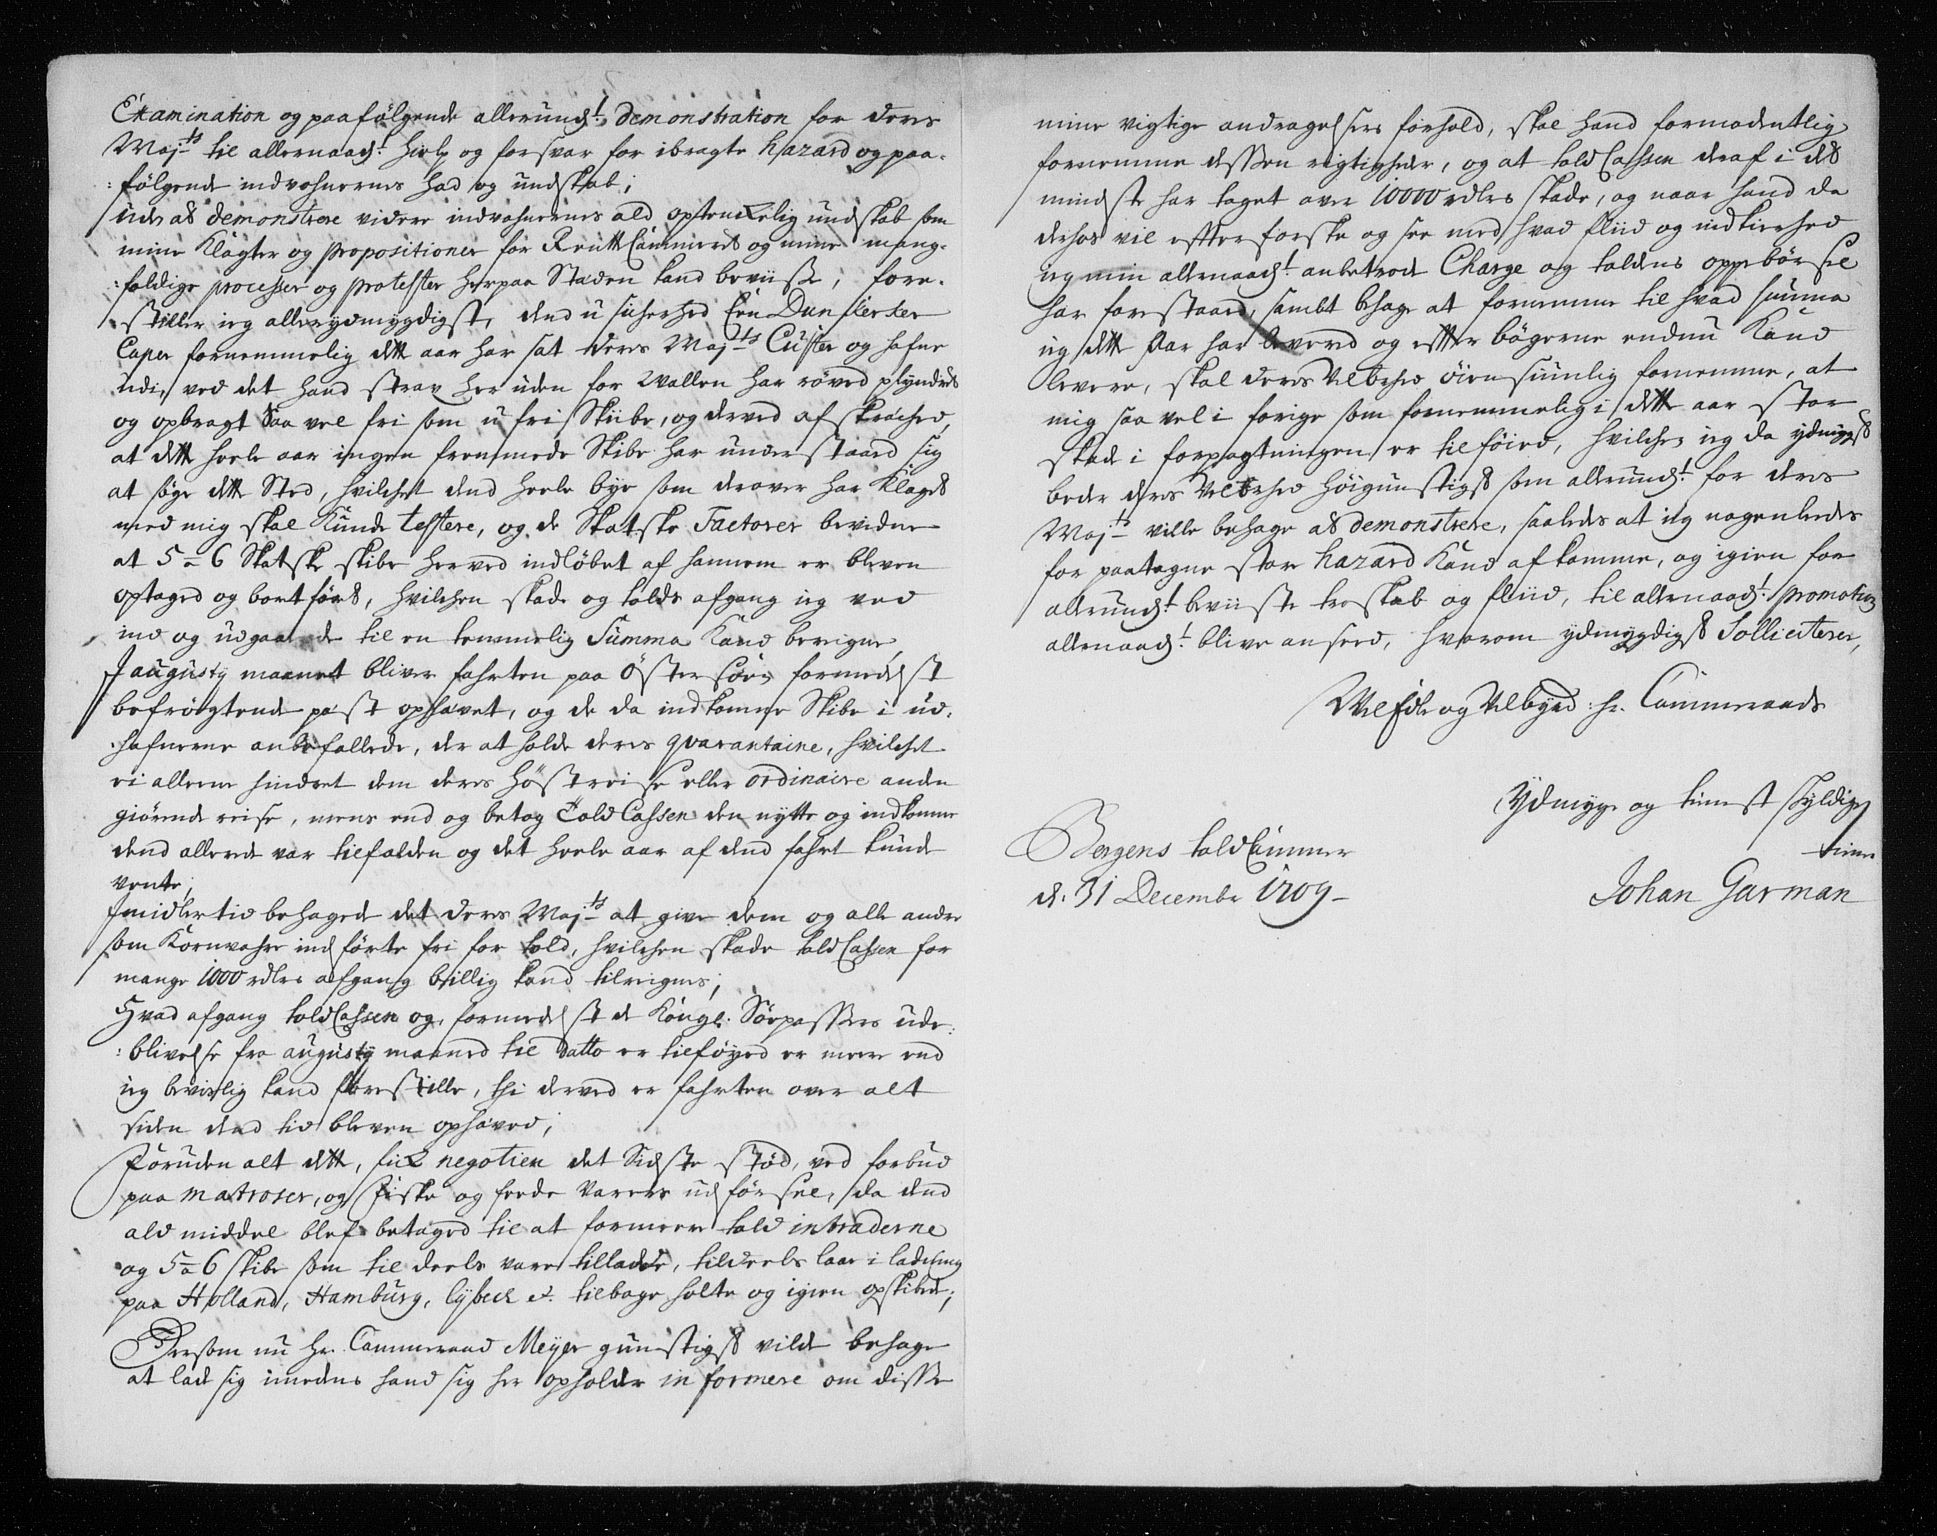 Examination og paafølgende allerund.t demonstration for deres
Maj.ts til allernaad.t hielp og forsvar for ibragte hazard og paa-
:følgende indvohnernes had og undskab;
Uden at demonstrere videre indvohnernes ald optenckelig undskab som
mine Klagter og propositioner for RentteCammeret og mine mang-
:foldige processer og protester her paa Staden kand beviise, fore-
stiller ieg allerydmygdigst, dend usicherhed Een Dunkercker
Caper fornemmelig dette aar har sat deres Maj.ts Custer og hafne
udi, ved det hand strax her uden for Wallen har røved plyndret
og opbragt saa vel fri som ufri Skiibe, og derved afskrecked,
at dette heele aar ingen fremmede Skibe har understaaed sig
at søge dette Sted, hvilchet dend heele bye som derover har Klaget
med mig skal Kunde testere, og de Skotske Factorer bevidne
at 5 a 6 Skotske skibe herved indløbet af hannem er bleven
optaged og bortført, hvilchen skade og tolds afgang ieg ved
ind og udgaaende til en temmelig Summa Kand beregne,
I augusty maanet bliver fahrten paa Østersøen formedelst
befrøgtende pest ophævet, og de da indkomne Skibe i ud-
:hafnerne anbefallede, der at holde deres quarantaine, hvilchet
ei allene hindret dem deres høstreise eller ordinaire anden
giørende reise, mens end og betog Told Cassen den nytte og indkomme
dend allerede var tilfalden og det heele aar af dend fahrt kunde
vente;
Imidlertid behagede det deres Maj.ts at give dem og alle andre
som Kornvahre indførte fri for told, hvilchen skade toldCassen for
mange 1000 rdlrs afgang billig kand tilreignes;
Hvad afgang toldCassen og formedelst de Kongl. Søepasses ude-
:blivelse fra augusty maaned til datto er tilføyed er meere end
ieg bevislig kand forestille, thi derved er fahrten over alt
siden dend tid bleven ophæved;
Foruden alt dette, fick negotien det Sidste stød, ved forbud
paa matroser, og fiske og feede Varers udførsel, da dend
ald middel blef betaged til at formeere told intraderne
og 5 a 6 skibe som til deels vare tilladte, tildeels laae i ladning
paa Holland, Hamburg, Lybeck et. tilbage holte og igien opskibede;
Dersom nu hr. Cammeraad Meyer gunstigst vilde behage
at lade sig imedens hand sig her opholder informere om disse
mine vigtige andragelsers forhold, skal hand formodentlig
fornemme dessen rigtighede, og at told Cassen deraf i det
mindste har taget over 10000 rdlrs skade, og naar hand da
derhos vil effterforske og see med hvad fliid og indkierhed
ieg min allernaad.t anbetroede Charge og toldens oppebørsel
har forestaaed, sambt behage at fornemme til hvad summa
ieg dette Aar har levered og effter bøgerne endnu Kand
levere, skal deres Velb:hed øiensiunlig fornemme, at
mig saa vel i forige som fornemmelig i dette aar stor
skade i forpagtningen er tilføied, hvilchet ieg da ydmygst
beder deres Velb:hed høigunstigst som allerund.t for deres
Maj.ts ville behage at demonstrere, saaledes at ieg nogenledes
for paatagne store hazard Kand afkomme, og igien for
allerund.t beviiste troskab og fliid, til allernaad.t promotion
allernaad.t blive anseed, hvorom ydmygdigst Solliciterer,
Velædle og Velbyrd: hr. Cammeraads
Ydmyge og tienstskyldige
tiener
Bergens toldCammer
d. 31 Decembr 1709 -
Johan Garman